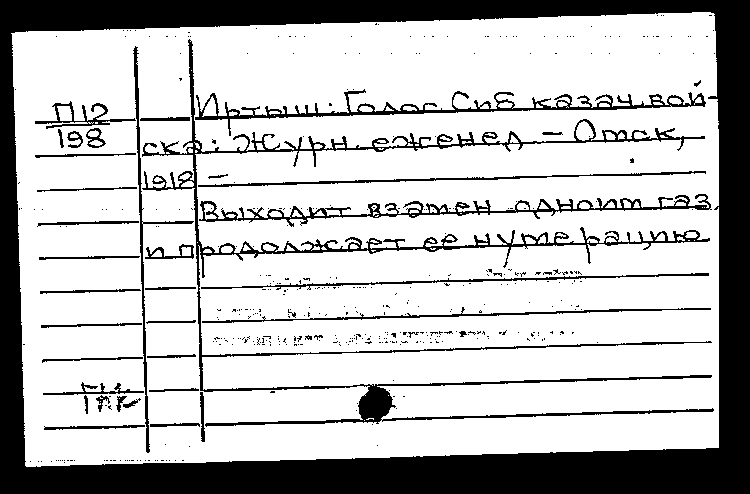 П12
198
Иртыш: Голос Сиб казач. вой-
ска: Журн. еженед – Омск,
1918 –
Выходит взамен одноим газ.
и продолжает ее нумерацию